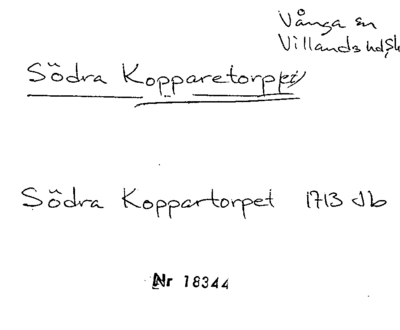 Vånga sn
Villands hd Sk
Södra Kopparetorpet
Södra Koppartorpet 1713 Jb
Nr 18344